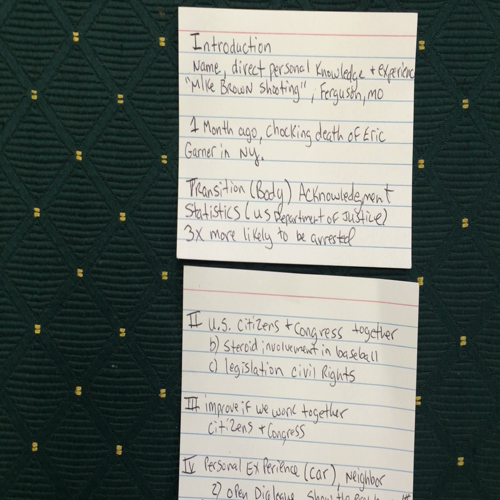 Introduction
Name, direct personal knowledge + experienc
"Mike Brown shooting", Ferguson, MO
1 Month ago, chocking death of Eric
Garner in NY.
Transition (Body) Acknowledgment
Statistics (U.S Department of Justice)
3x more likely to be arrested
II U.S. citizens + Congress together
b) steroid involvement in baseball
c) legislation civil Rights
III improve if we work together
citizens + Congress
IV Personal Experience (car), Neighbor
2) open Dialogue